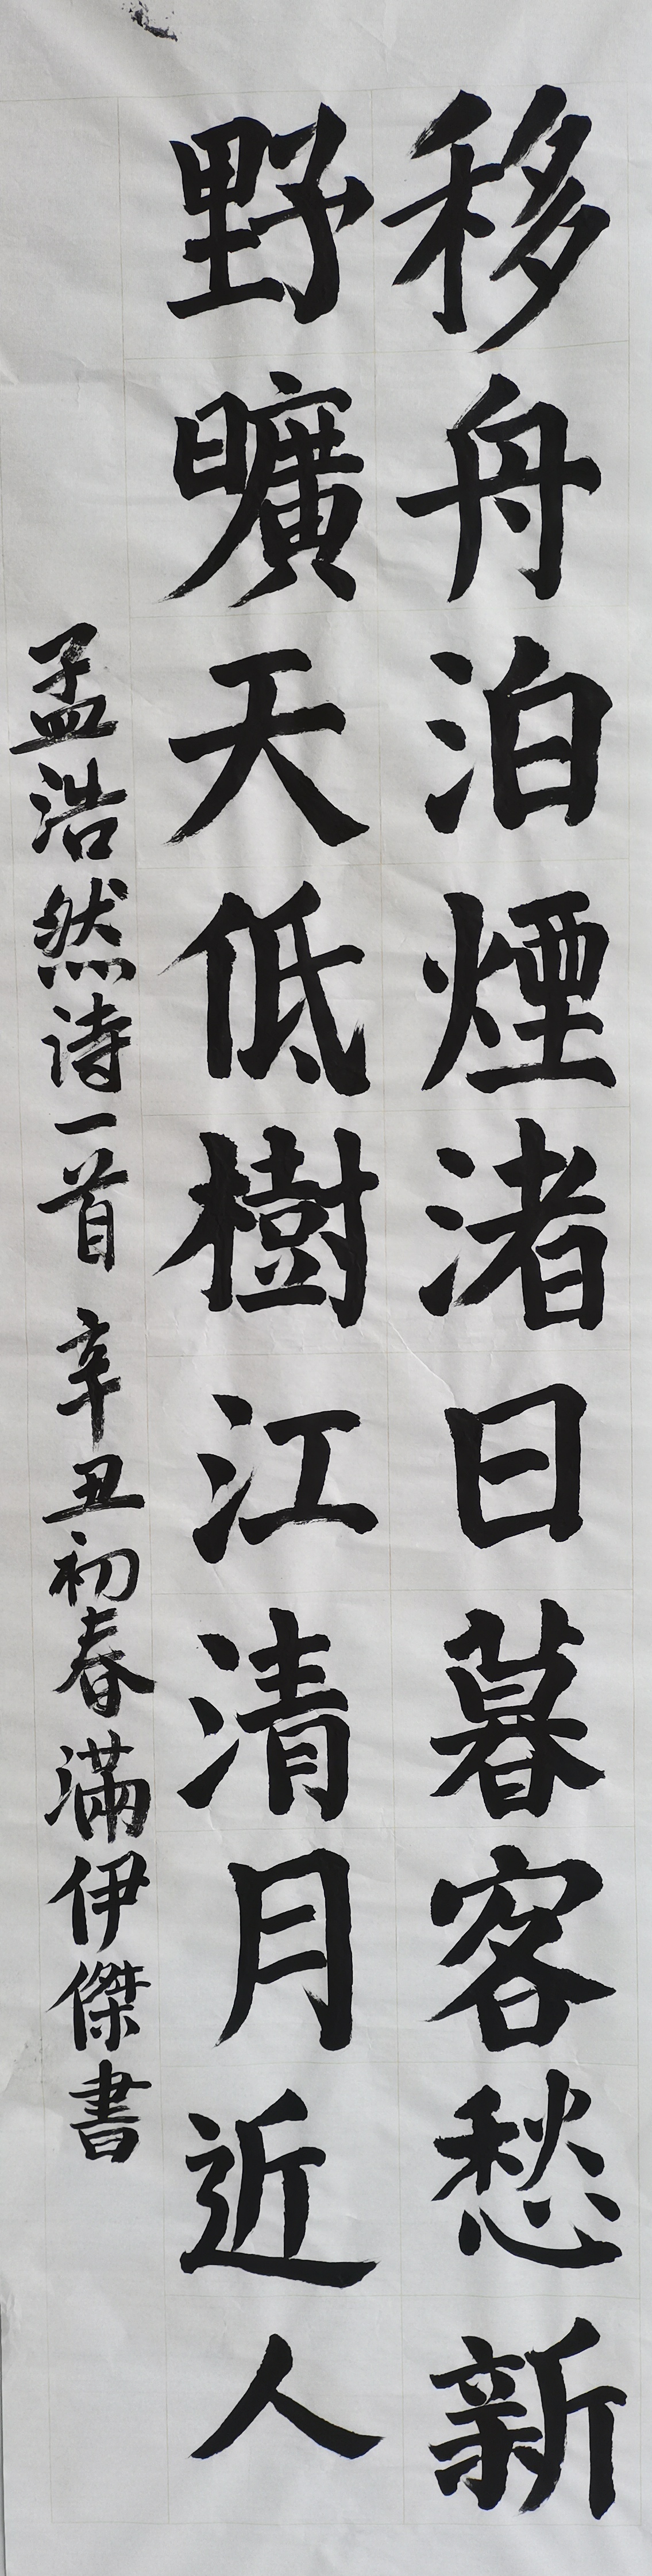 移舟泊煙渚日暮客愁新
野曠天低樹江清月近人
孟浩然诗一首 辛丑初春滿伊傑書